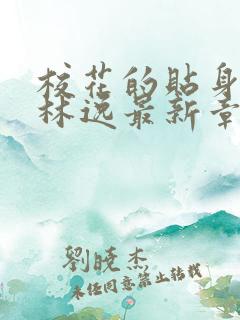 校花的贴身
林逸最新章
劉曉杰
未任同意禁止轉載